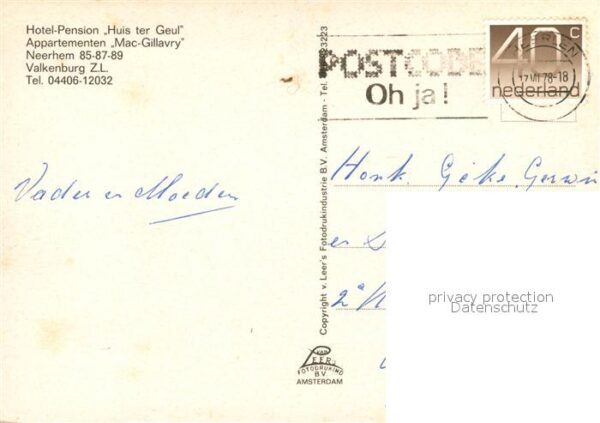 Hotel-Pension „Huis ter Geul”
Appartementen „Mac-Gillavry”
Neerhem 85-87-89
Valkenburg Z.L.
Tel. 04406-12032
Vader en Moeder
Copyright v. Leer's Fotodrukindustrie B.V. Amsterdam - Tel.
VAN
LEER's
FOTODRUKIND
BV
AMSTERDAM
POSTCODE
Oh ja!
40 c
nederland
78-18
Gerwin
er
2e
privacy protection
Datenschutz